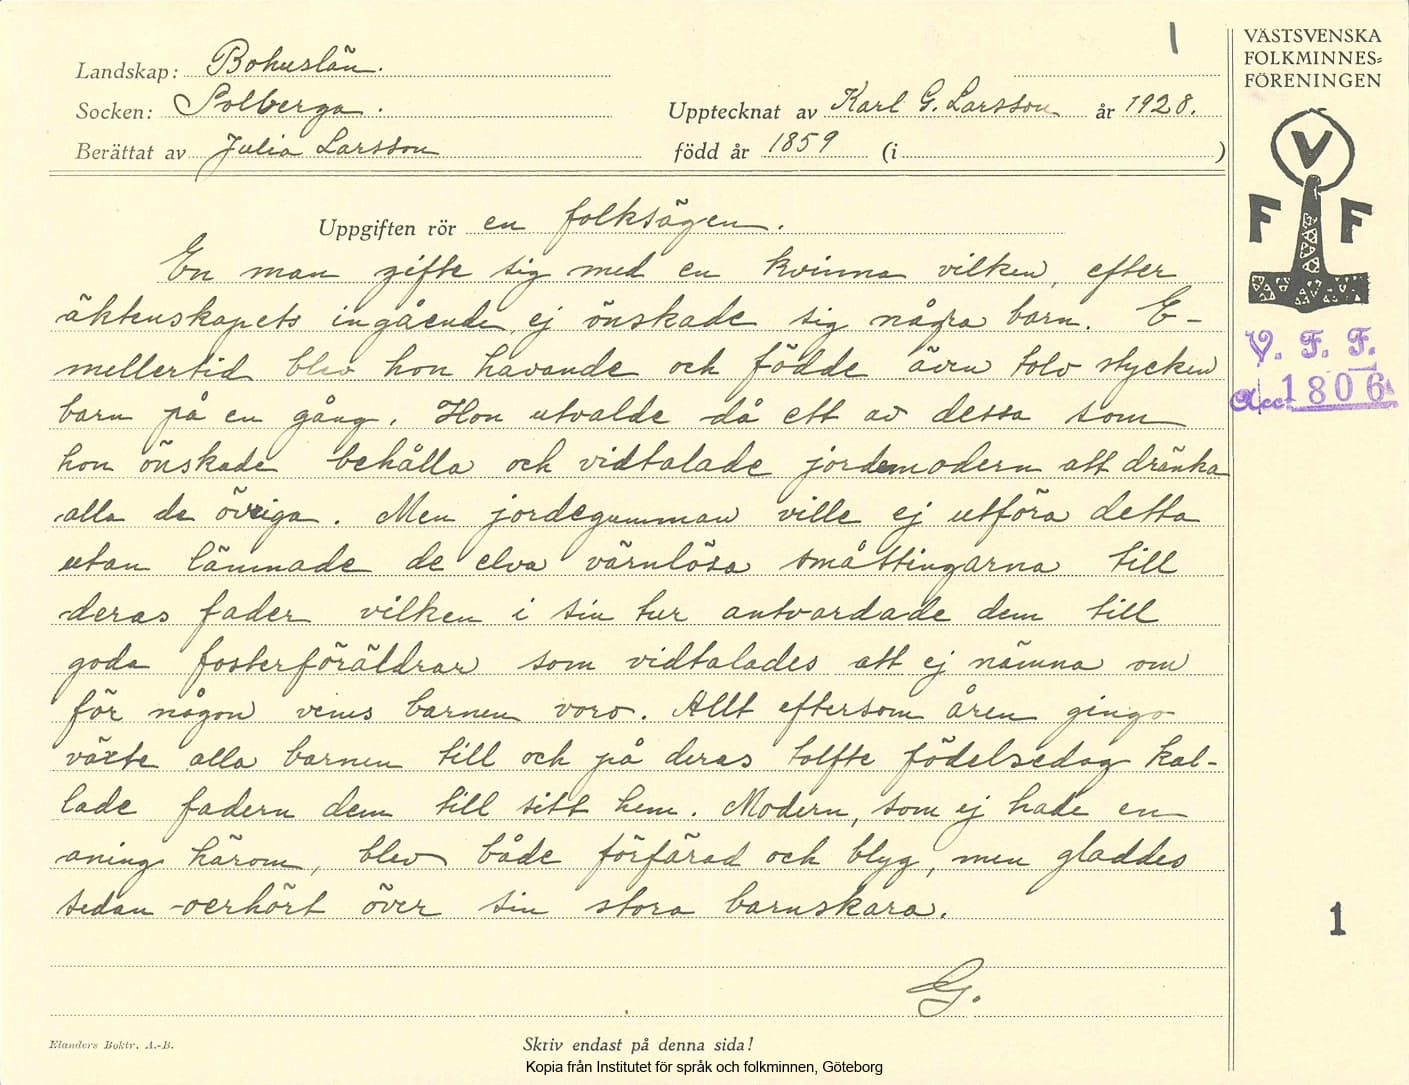 1
VÄSTSVENSKA
FOLKMINNES=
FÖRENINGEN
Landskap: Bohuslän.
Socken: Solberga.
Upptecknat av Karl G. Larsson år 1928.
Berättat av Julia Larsson född år 1859 (i )
V
F F
V. F. F.
Acc. 1806
Uppgiften rör en folksägen.
En man gifte sig med en kvinna vilken, efter
äktenskapets ingående, ej önskade sig några barn. E-
mellertid blev hon havande och födde även tolv stycken
barn på en gång. Hon utvalde då ett av dessa som
hon önskade behålla och vidtalade jordemodern att dränka
alla de övriga. Men jordegumman ville ej utföra detta
utan lämnade de elva värnlösa småttingarna till
deras fader vilken i sin tur antvardade dem till
goda fosterföräldrar som vidtalades att ej nämna om
för någon vems barnen voro. Allt eftersom åren gingo
växte alla barnen till och på deras tolfte födelsedag kal-
lade fadern dem till sitt hem. Modern, som ej hade en
aning härom, blev både förfärad och blyg, men gladdes
sedan oerhört över sin stora barnskara.
1
G.
Elanders Boktr. A.-B.
Skriv endast på denna sida!
Kopia från Institutet för språk och folkminnen, Göteborg